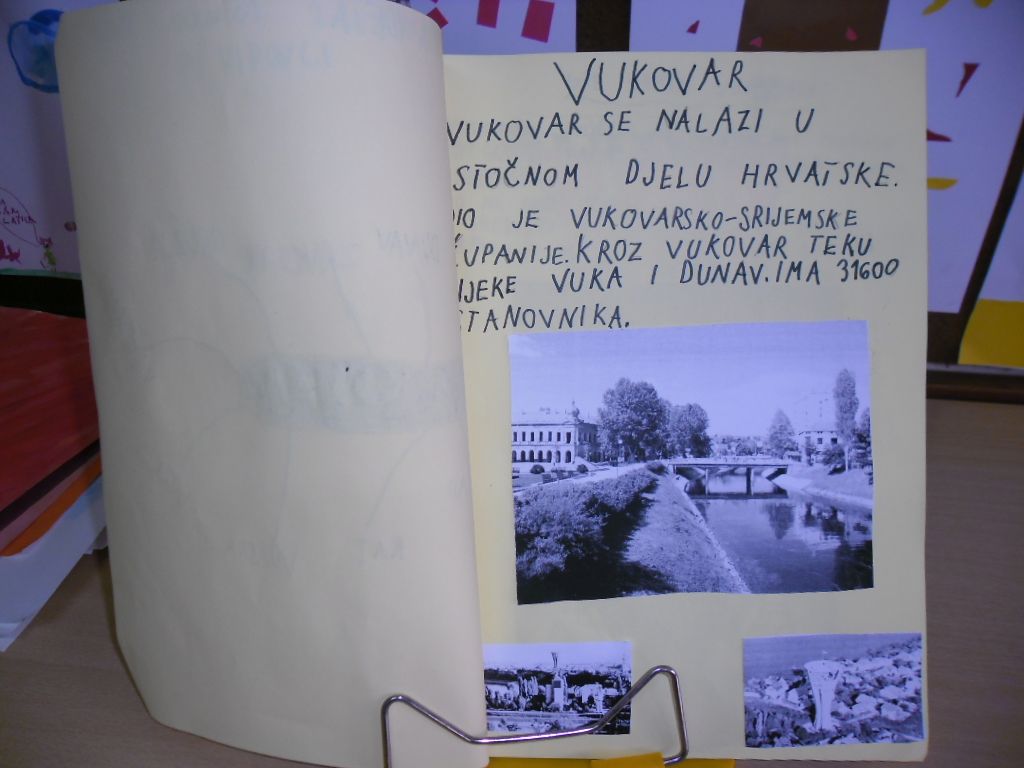 VUKOVAR
VUKOVAR SE NALAZI U
STOČNOM DJELU HRVATSKE.
DIO JE VUKOVARSKO-SRIJEMSKE
ŽUPANIJE. KROZ VUKOVAR TEKU
IJEKE VUKA I DUNAV. IMA 31600
STANOVNIKA.